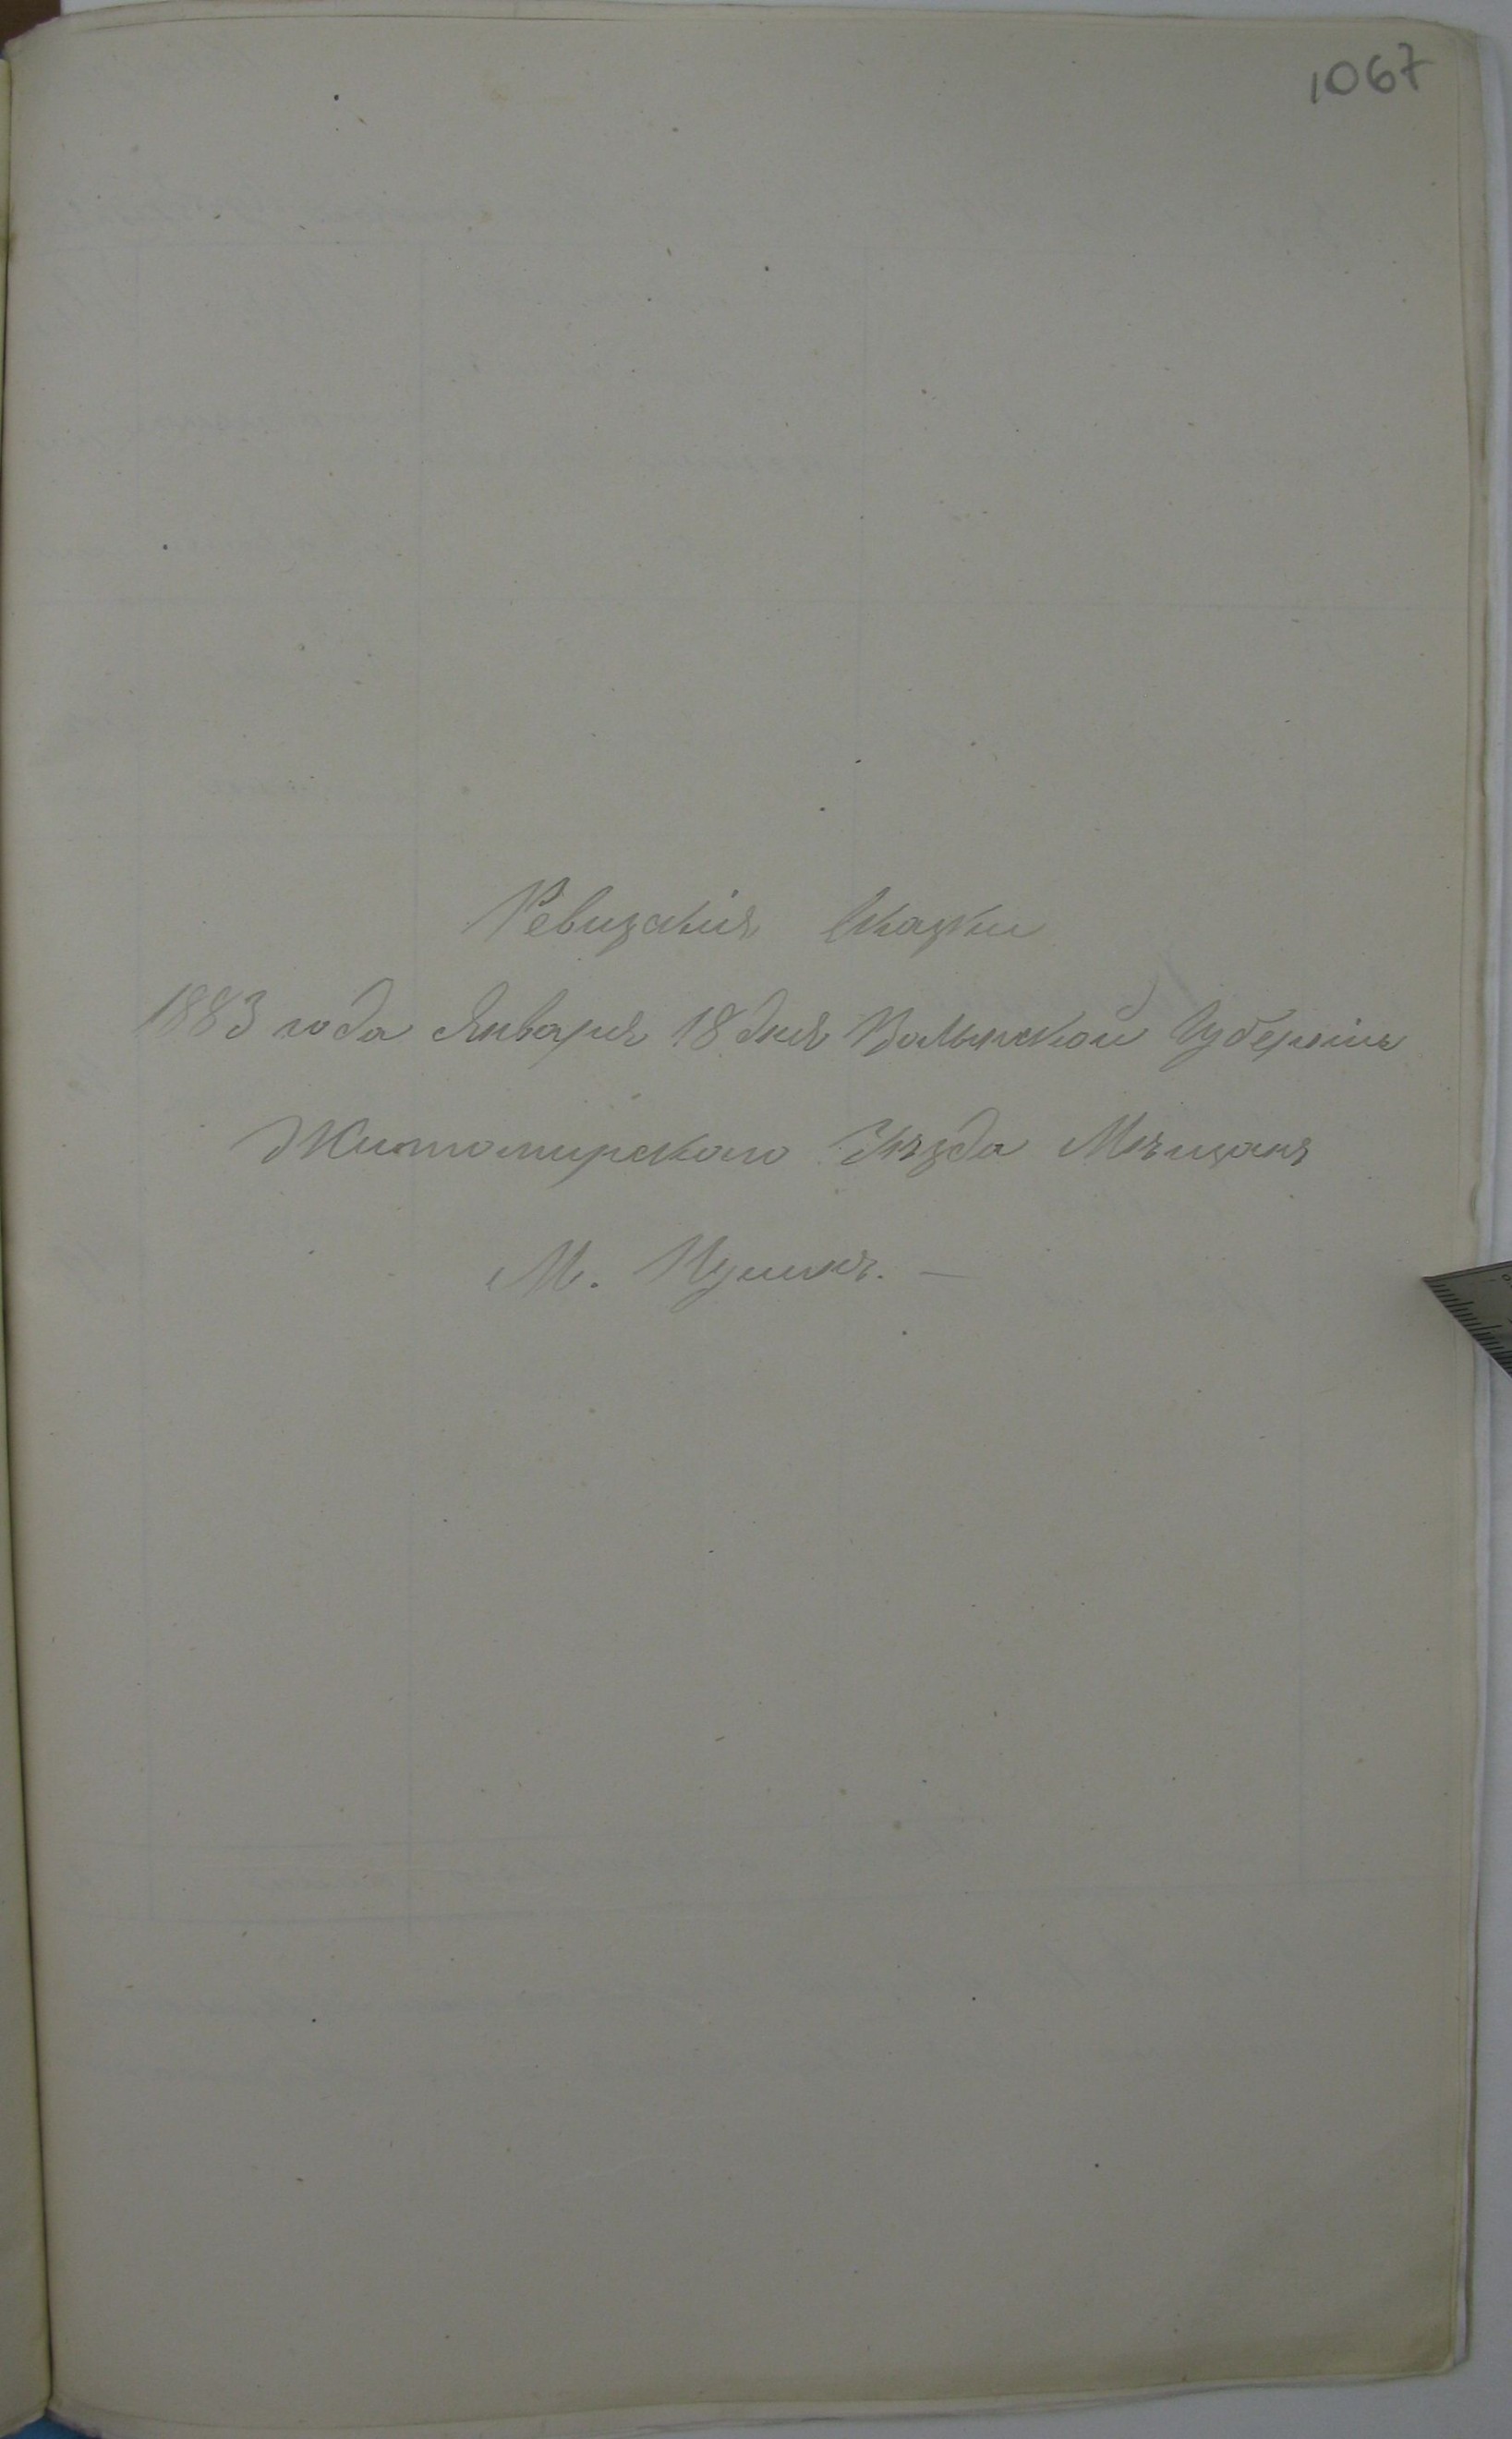 1067
Ревизскія Сказки
1883 года Января 18 дня Волынской Губерніи
Житомирскаго Уѣзда Мѣщанъ
М.